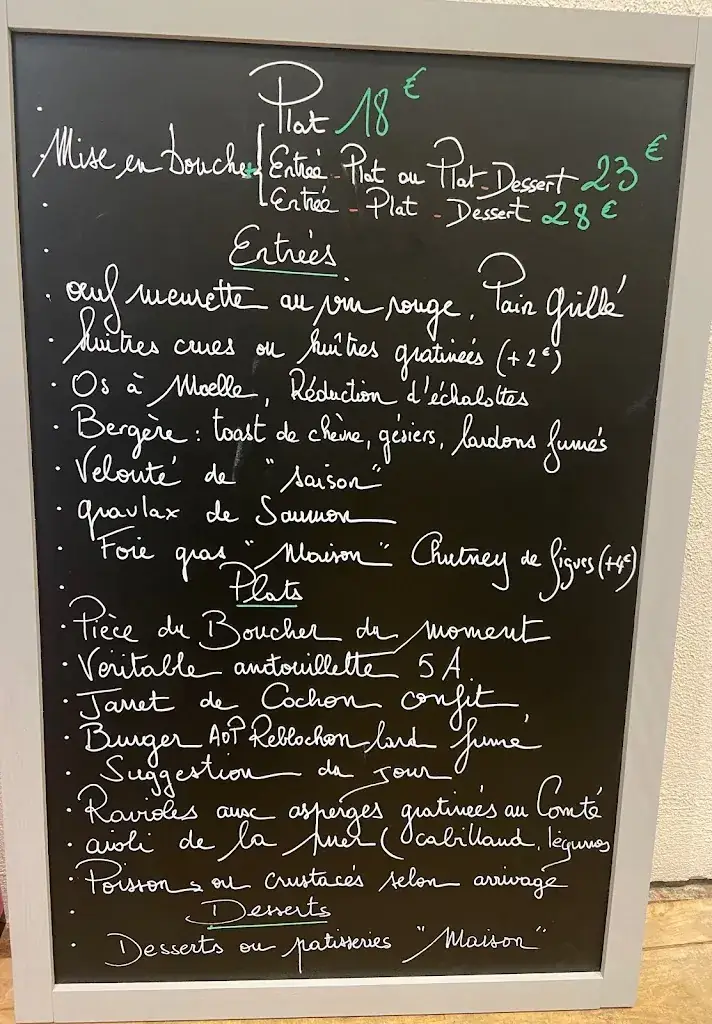 Plat 18€
Mise en bouche + Entrée - Plat ou Plat - Dessert 23€
Entrée - Plat - Dessert 28€
Entrées
œuf meurette au vin rouge, Pain grillé
huîtres crues ou huîtres gratinées (+2€)
Os à Moelle, Réduction d'échalottes
Bergère : toast de chèvre, gésiers, lardons fumés
Velouté de "saison"
gravlax de Saumon
Foie gras "Maison" Chutney de figues (+4€)
Plats
Pièce du Boucher du moment
Véritable andouillette 5A.
Jarret de Cochon confit
Burger AOP Reblochon, lard fumé
Suggestion du jour
Ravioles aux asperges gratinées au Comté
aïoli de la mer (cabillaud, légumes
Poissons ou crustacés selon arrivage
Desserts
Desserts ou patisseries "Maison"